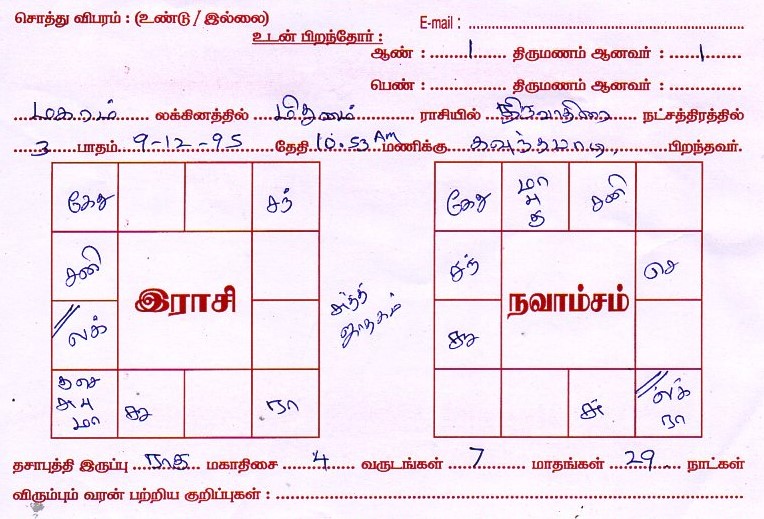 சொத்து விபரம் : (உண்டு / இல்லை)
E-mail :
உடன் பிறந்தோர் :
ஆண் : 1 திருமணம் ஆனவர் : 1
பெண் : திருமணம் ஆனவர் :
மகரம் லக்கினத்தில் மிதுனம் ராசியில் திருவாதிரை நட்சத்திரத்தில்
3 பாதம் 9-12-95 தேதி 10.53 AM மணிக்கு கவுந்தபாடி பிறந்தவர்.
கேது சந்
சனி
லக்
இராசி
சுத்த
ஜாதகம்
சு ரா
கேது மா சனி
சந் செ
நவாம்சம்
லக்
ரா
தசாபுத்தி இருப்பு ராகு மகாதிசை 4 வருடங்கள் 7 மாதங்கள் 29 நாட்கள்
விரும்பும் வரன் பற்றிய குறிப்புகள் :